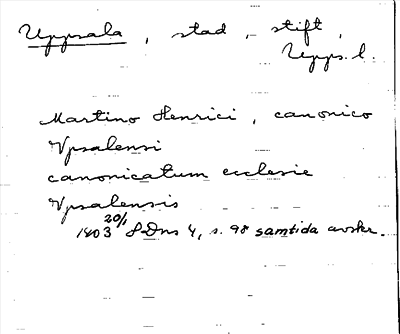 Uppsala, stad, stift,
Upps. l.
Martino Henrici, canonico
Vpsalensi
canonicatum ecclesie
Vpsalensis
1403 20/1 SDns 4, s. 98 samtida avskr.